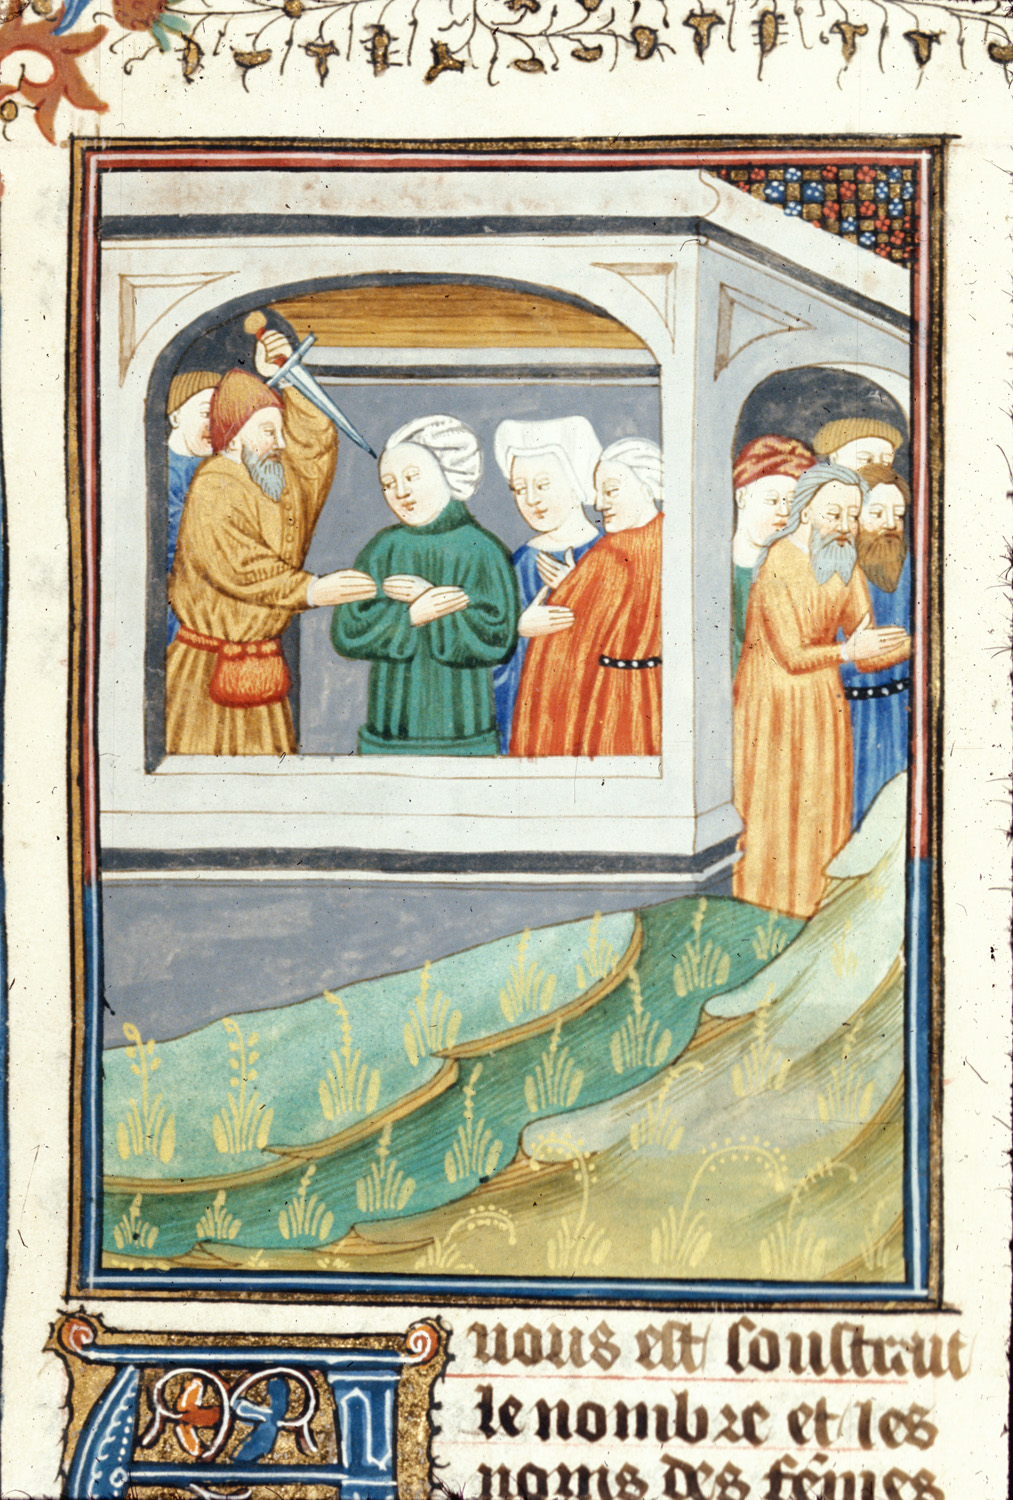 A
nous est soustrait
le nombre et les
noms des fẽmes